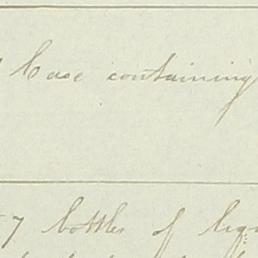 Case containing
7 bottles of